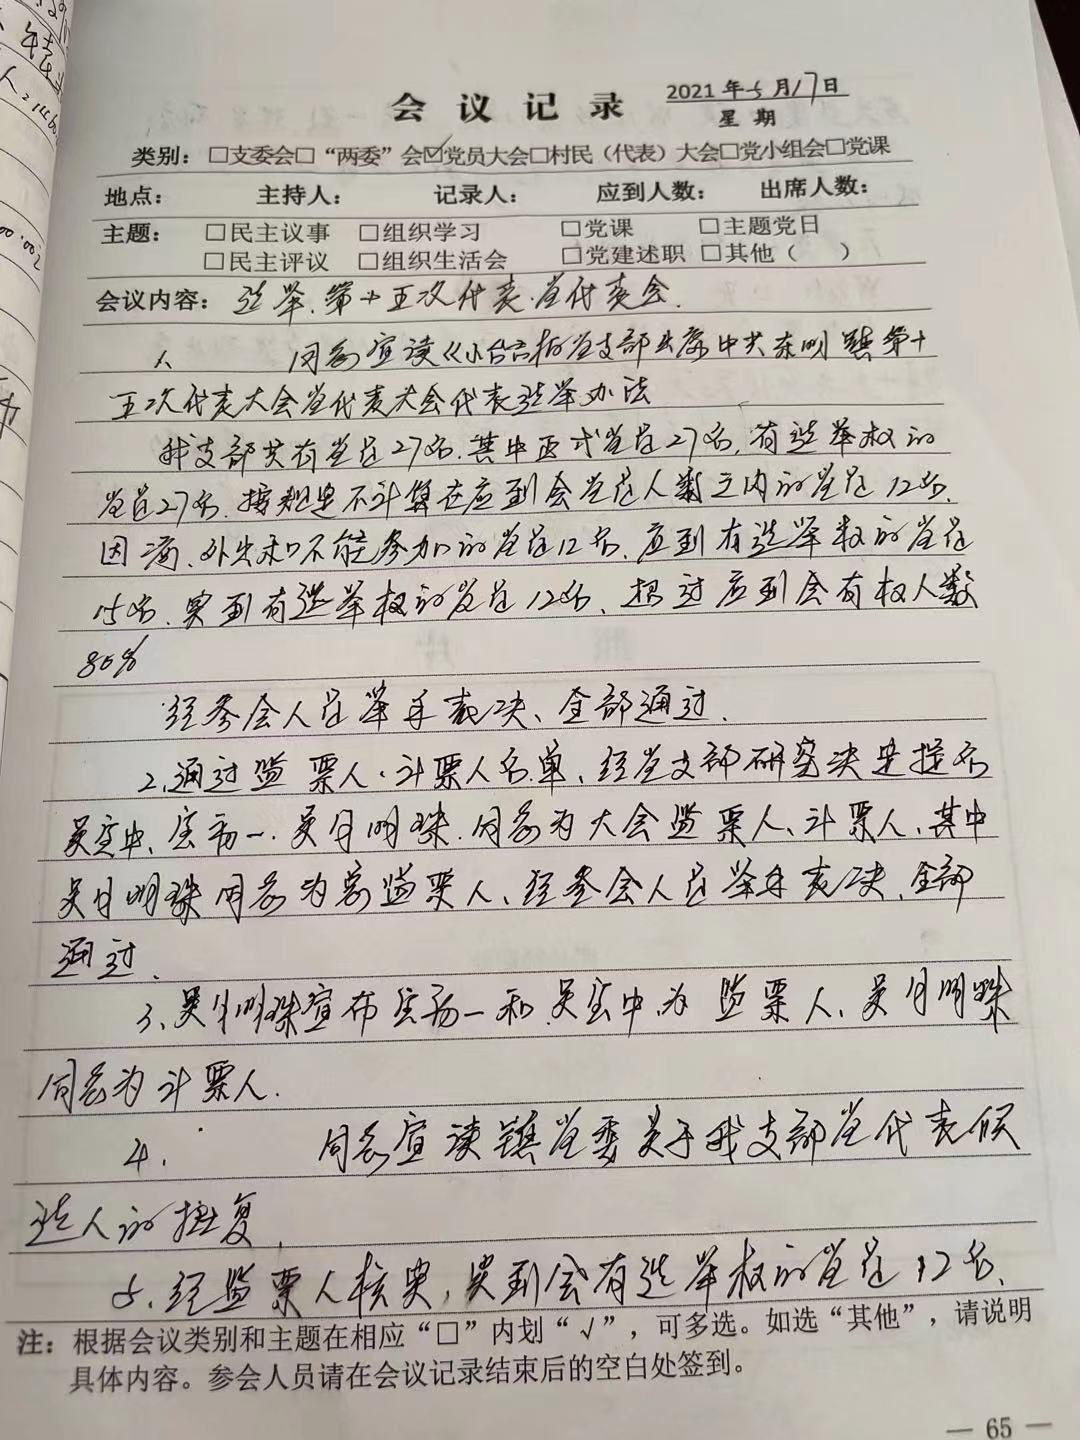 会议记录 2021年5月17日
星期
类别：□支委会□“两委”会☑党员大会□村民（代表）大会□党小组会□党课
地点： 主持人： 记录人： 应到人数： 出席人数：
主题： □民主议事 □组织学习 □党课 □主题党日
□民主评议 □组织生活会 □党建述职 □其他（ ）
会议内容：选举.第十五次代表.党代表会.
1、 同志宣读《小台村党支部出席中共东明镇第十
五次代表大会党代表大会代表选举办法
我支部共有党员27名.其中正式党员27名,有选举权的
党员27名.按规定不计算在应到会党员人数之内的党员12名,
因病、外出和不能参加的党员12名、应到有选举权的党员
15名.实到有选举权的党员12名、超过应到会有权人数
80%
经参会人员举手表决、全部通过.
2.通过监票人.计票人名单、经党支部研究决定提名
吴宝中、 吴月明珠.同志为大会监票人、计票人,其中
吴月明珠同志为总监票人、经参会人员举手表决.全部
通过.
3、吴月明珠宣布 一和吴宝中为 监票人、吴月明珠
同志为计票人.
4. 同志宣读镇党委关于我支部党代表候
选人的批复.
5、经监票人核实,实到会有选举权的党员12名、
注：根据会议类别和主题在相应“□”内划“√”，可多选。如选“其他”，请说明
具体内容。参会人员请在会议记录结束后的空白处签到。
— 65 —